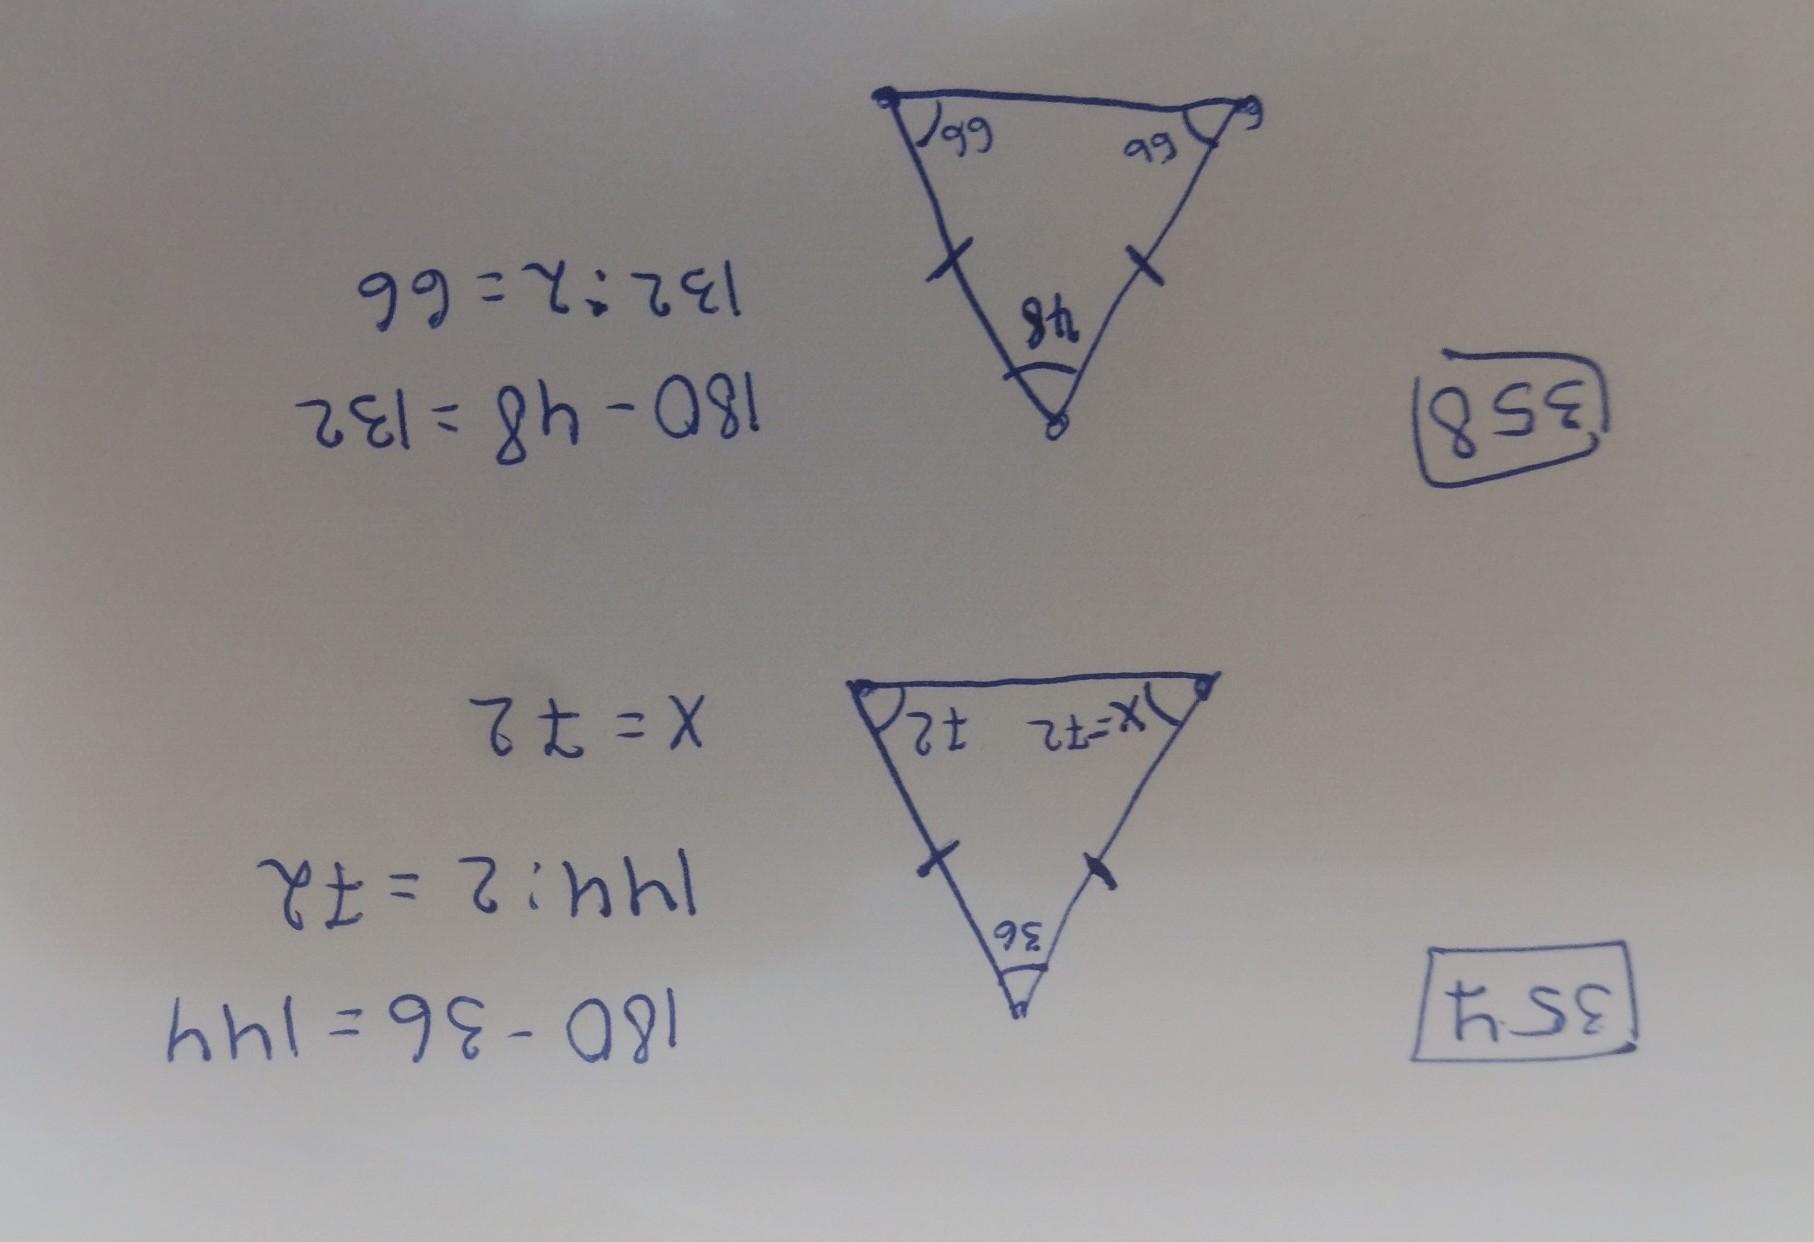 357
36
72
x=72
180 - 36 = 144
144 : 2 = 72
x = 72
358
48
66
66
180 - 48 = 132
132 : 2 = 66